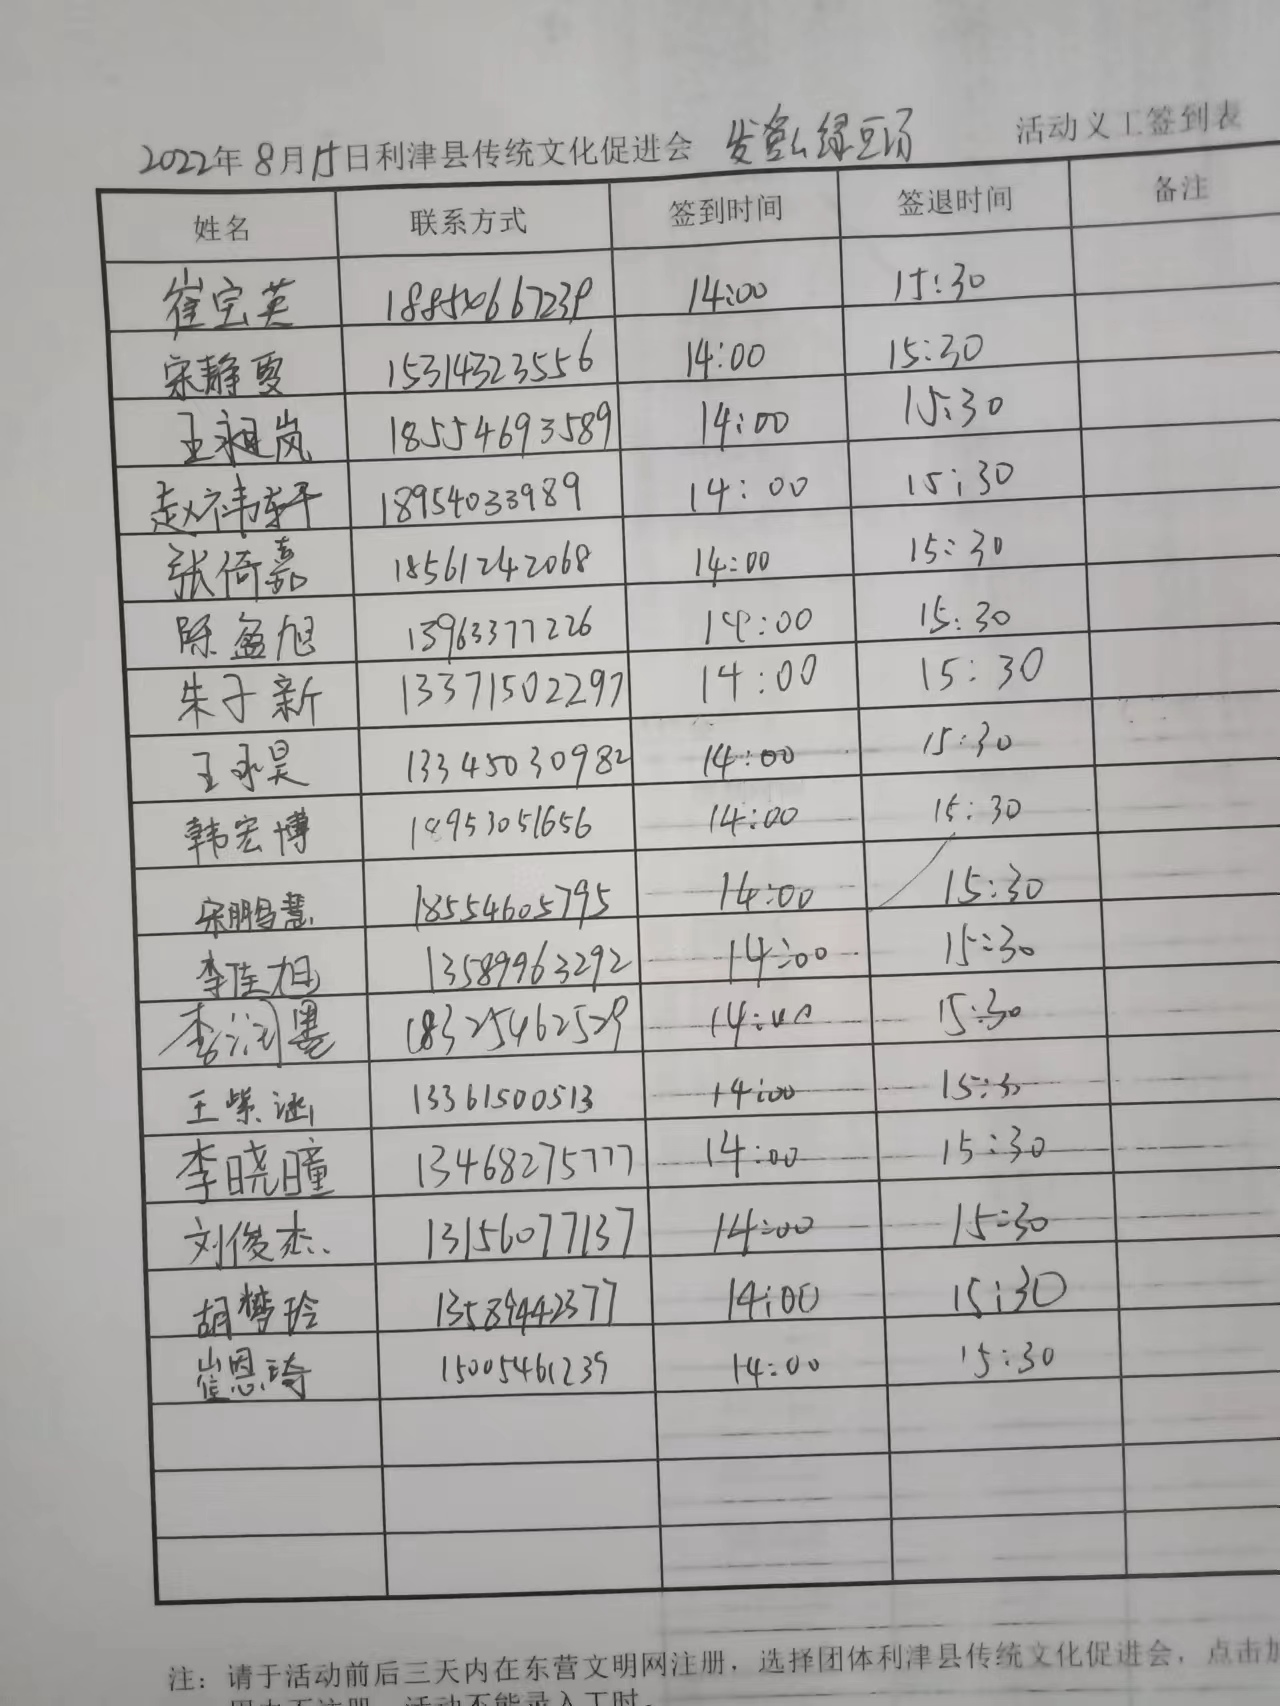 2022年8月15日利津县传统文化促进会 发爱心绿豆汤 活动义工签到表
姓名 联系方式 签到时间 签退时间 备注
崔宝英 14:00 15:30
宋静雯 15314323556 14:00 15:30
王祖岚 18554693589 14:00 15:30
赵祎轩 18954033989 14:00 15:30
张倚嘉 18561242068 14:00 15:30
陈盈旭 13963377226 14:00 15:30
朱子新 13371502297 14:00 15:30
王永昊 13345030982 14:00 15:30
韩宏博 18953051656 14:00 15:30
宋鹏慧 18554605795 14:00 15:30
李佳旭 13589963292 14:00 15:30
李润墨 18325462529 14:00 15:30
王紫涵 13361500513 14:00 15:30
李晓瞳 13468275777 14:00 15:30
刘俊杰 13156077137 14:00 15:30
胡梦玲 13589442377 14:00 15:30
崔恩琦 15005461239 14:00 15:30
注：请于活动前后三天内在东营文明网注册，选择团体利津县传统文化促进会，点击加